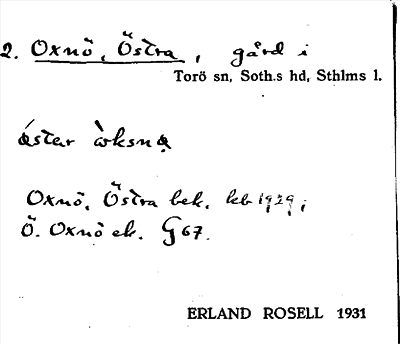 2. Oxnö, Östra, gård i
Torö sn, Soth.s hd, Sthlms l.
Oxnö, Östra bek. kb 1929;
Ö. Oxnö ek. G 67.
ERLAND ROSELL 1931